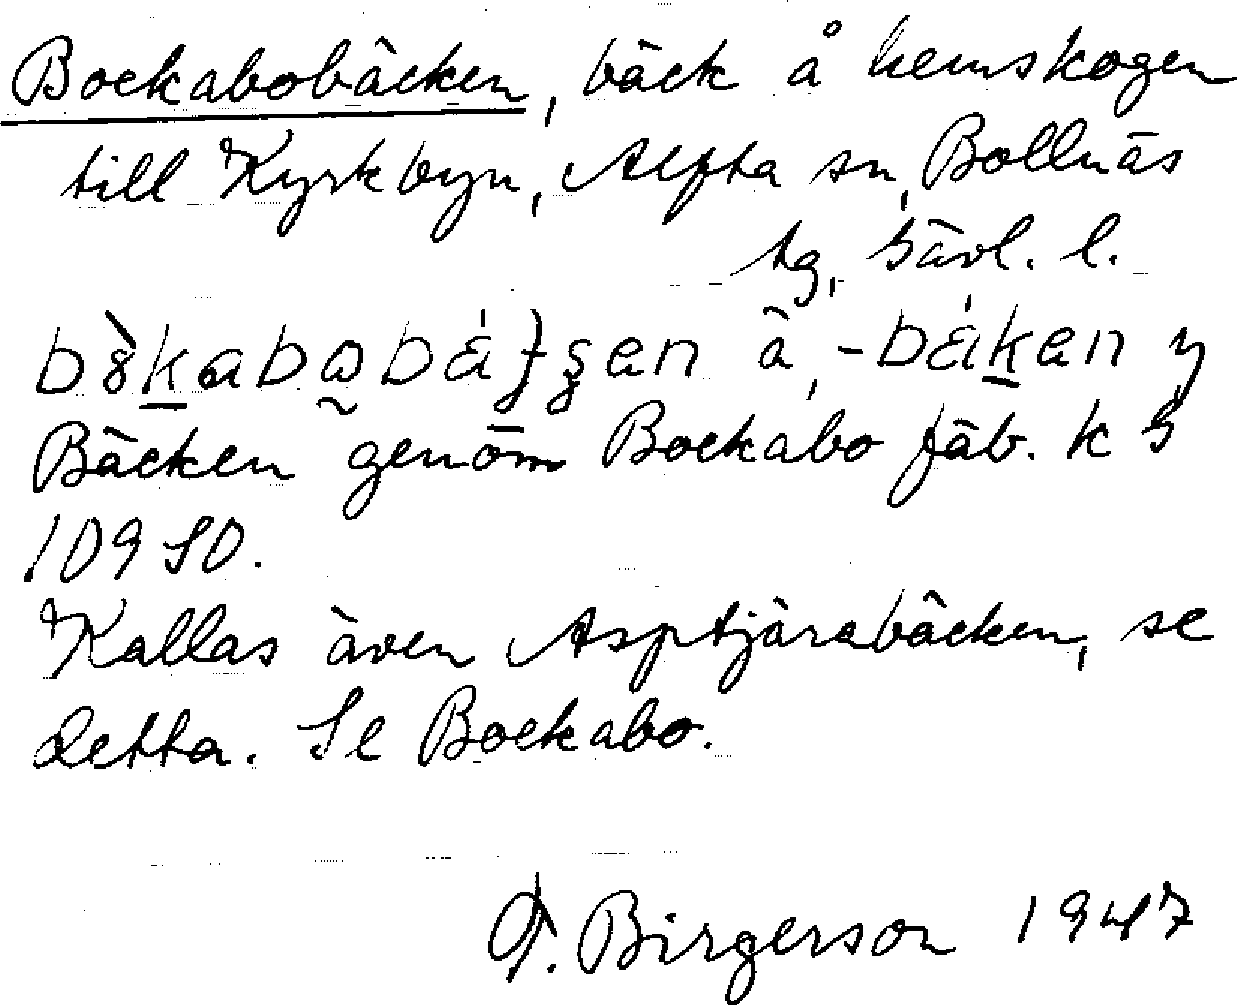 Bockabobäcken, bäck å hemskogen
till Kyrkbyn, Alfta sn, Bollnäs
tg, Gävl. l.
Bäcken genom Bockabo fäb. k G
109 SO.
Kallas även Asptjärabäcken, se
detta. Se Bockabo.
F. Birgerson 1947